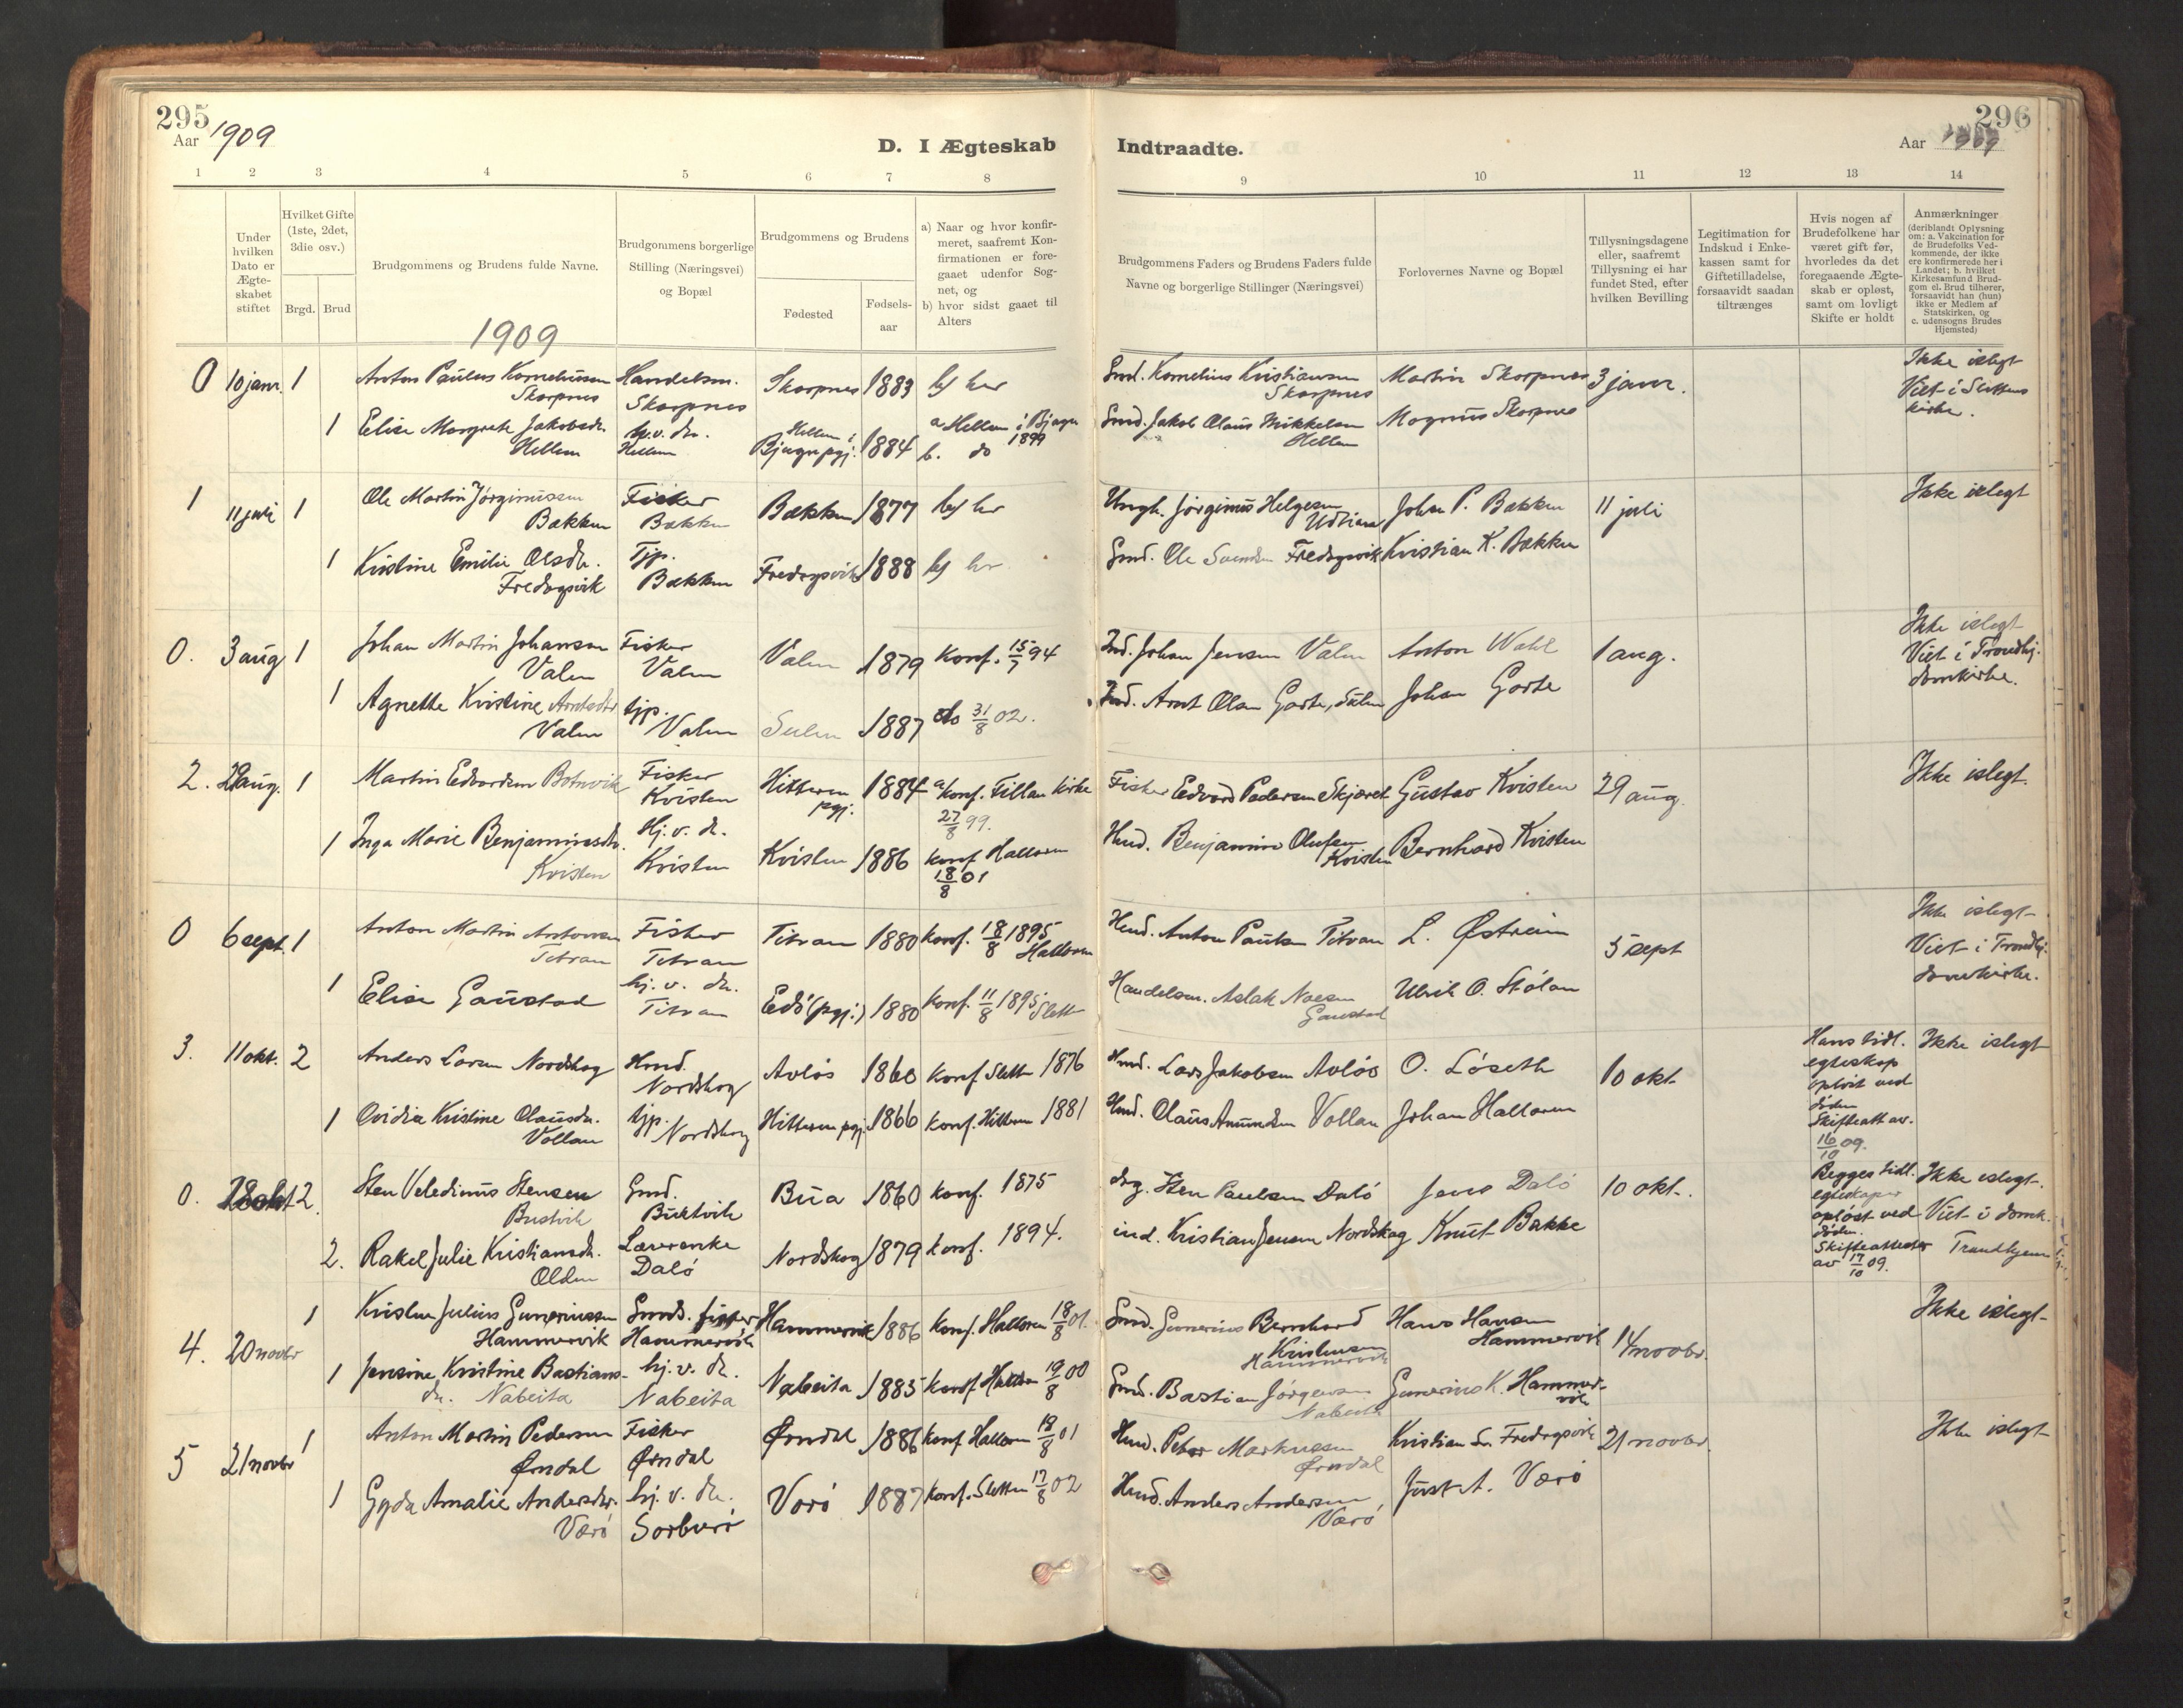 295
Aar 1909
D. I Ægteskab
1 2 3 4 5 6 7 8
Under hvilken Dato er Ægte-skabet stiftet
Hvilket Gifte (1ste, 2det, 3die osv.)
Brgd. Brud
Brudgommens og Brudens fulde Navne.
Brudgommens borgerlige Stilling (Næringsvei) og Bopæl
Brudgommens og Brudens
Fødested
Fødsels-aar
a) Naar og hvor konfir-meret, saafremt Kon-firmationen er fore-gaaet udenfor Sog-net, og
b) hvor sidst gaaet til Alters
1909
0 10 janr. 1 Anton Paulus Korneliussen Handelsm. Skarpnes 1883 her
Skarpnes Skarpnes
1 Elise Margrete Jakobsdr. hj.v. dr. Hellem i 1884 a Hellem i Bjugn 1899
Hellem Hellem Bjugn pgj. b. do
1 11 juli 1 Ole Martin Jørginussen Fisker Bakken 1877
Bakken Bakken
1 Kristine Emilie Olsdr. Tjp. Fredagsvik 1888
Fredagsvik Bakken
0. 3 aug 1 Johan Martin Johansen Fisker Valen 1879 Konf. 15/7 94
Valen Valen
1 Agnette Kristine Arntsdtr tjp. Sulen 1887 do 31/8 02.
Valen Valen
2. 29 aug. 1 Martin Edvardsen Botnvik Fisker Hitteren 1884 a konf. Fillan kirke
Kvisten pgj. 27/8 99.
1 Inga Marie Benjaminsdr. Hj. v. dr. Kvisten 1886 konf Halloren
Kvisten Kvisten 18/8 01
0 6 sept. 1 Anton Martin Antonsen Fisker Titran 1880 konf. 18/8 1895
Titran Titran Halloren
1 Elise Gaustad hj. v. dr. Edö (pgj.) 1880 konf. 11/8 1895 Slett
Titran
3. 11 okt. 2 Anders Larsen Nordskog Hmd. Avløs 1860 konf Sletta 1876
Nordskog
1 Ovidia Kristine Olausdr. tjp. Hitteren pgj. 1866 konf. Hitteren 1881
Vollan Nordskog
0. 18 okt 2. Sten Veledinus Stensen Gmd. Bua 1860 konf. 1875
Bustvik Buktvik
2. Rakel Julie Kristiansdr. Lærerenke Nordskog 1879 konf. 1894.
Olden Dalö
4. 20 novbr 1 Kristen Julius Guneriussen Gmds. fisker Hammervik 1886 konf. Halloren 18/8 01.
Hammervik Hammervik
1 Jensine Kristine Bastians- hj. v. dr. Nabeita 1885 konf Halloren 19/8 00
dr. Nabeita Nabeita
5 21 novbr 1 Anton Martin Pedersen Fisker Ørndal 1886 konf Halloren 18/8 01
Ørndal Ørndal
1 Gyda Amalie Andersdtr. hj. v. dr. Værö 1887 konf. Sletten 17/8 02
Værö Sorburö
296
Indtraadte.
Aar 1909
9 10 11 12 13 14
Brudgommens Faders og Brudens Faders fulde Navne og borgerlige Stillinger (Næringsvei)
Forlovernes Navne og Bopæl
Tillysningsdagene eller, saafremt Tillysning ei har fundet Sted, efter hvilken Bevilling
Legitimation for Indskud i Enke-kassen samt for Giftetilladelse, forsaavidt saadan tiltrænges
Hvis nogen af Brudefolkene har været gift før, hvorledes da det foregaaende Ægte-skab er opløst, samt om lovligt Skifte er holdt
Anmærkninger (deriblandt Oplysning om: a. Vakcination for de Brudefolks Ved-kommende, der ikke ere konfirmerede her i Landet; b. hvilket Kirkesamfund Brud-gom el. Brud tilhører, forsaavidt han (hun) ikke er Medlem af Statskirken, og c. udensogns Brudes Hjemsted)
Gmd. Kornelius Kristiansen Martin Skarpnes 3 janr. Ikke islegt
Skarpnes Viet i Slettens
Gmd. Jakob Olaus Mikkelsen Magnus Skarpnes kirke.
Hellem
Ungk. Jørginus Helgesen Johan P. Bakken 11 juli Ikke islegt
Gmd. Ole Svendsen Fredagsvik Kristian K. Bakken
Ind. Johan Jensen Valen Anton Wahl 1 aug. Ikke islegt
Viet i Trondhj.
Ind. Arnt Olsen Gaste, Sulen Johan Gaste domkirke.
Fisker Edvard Pedersen Skjæret Gustav Kvisten 29 aug. Ikke islegt.
Hmd. Benjamin Olufsen Bernhard Kvisten
Kvisten
Hmd. Anton Paulsen Titran L. Østreim 5 sept Ikke islegt
Viet i Trondhj.
Handelsm. Aslak Naesen Ulrik O. Stølan domkirke.
Gaustad
Hmd. Lars Jakobsen Avløs O. Løseth 10 okt Hans tidl. Ikke islegt
egteskap
opløst ved
Hmd. Olaus Amundsen Vollan Johan Halloren døden
Skifteatt av.
16/10 09.
Sten Paulsen Dalö Jens Dalö 10 okt. Begges tidl. Ikke islegt.
egteskaper
ind. Kristian Jensen Nordskag Knut Bakke opløst ved Viet i domk.
døden.
Skifteattester Trondhjem
av 17/10 09.
Gmd. Gunerius Bernhard Hans Hansen 14 novbr. Ikke islegt
Kristensen Hammervik
Hammervik
Gmd. Bastian Jørgensen Gunerius K. Hammer-
Nabeita vik
Hmd. Peter Markussen Kristian Fredagsvik 21 novbr. Ikke islegt
Ørndal
Hmd. Anders Andersen Just A. Værö
Værö